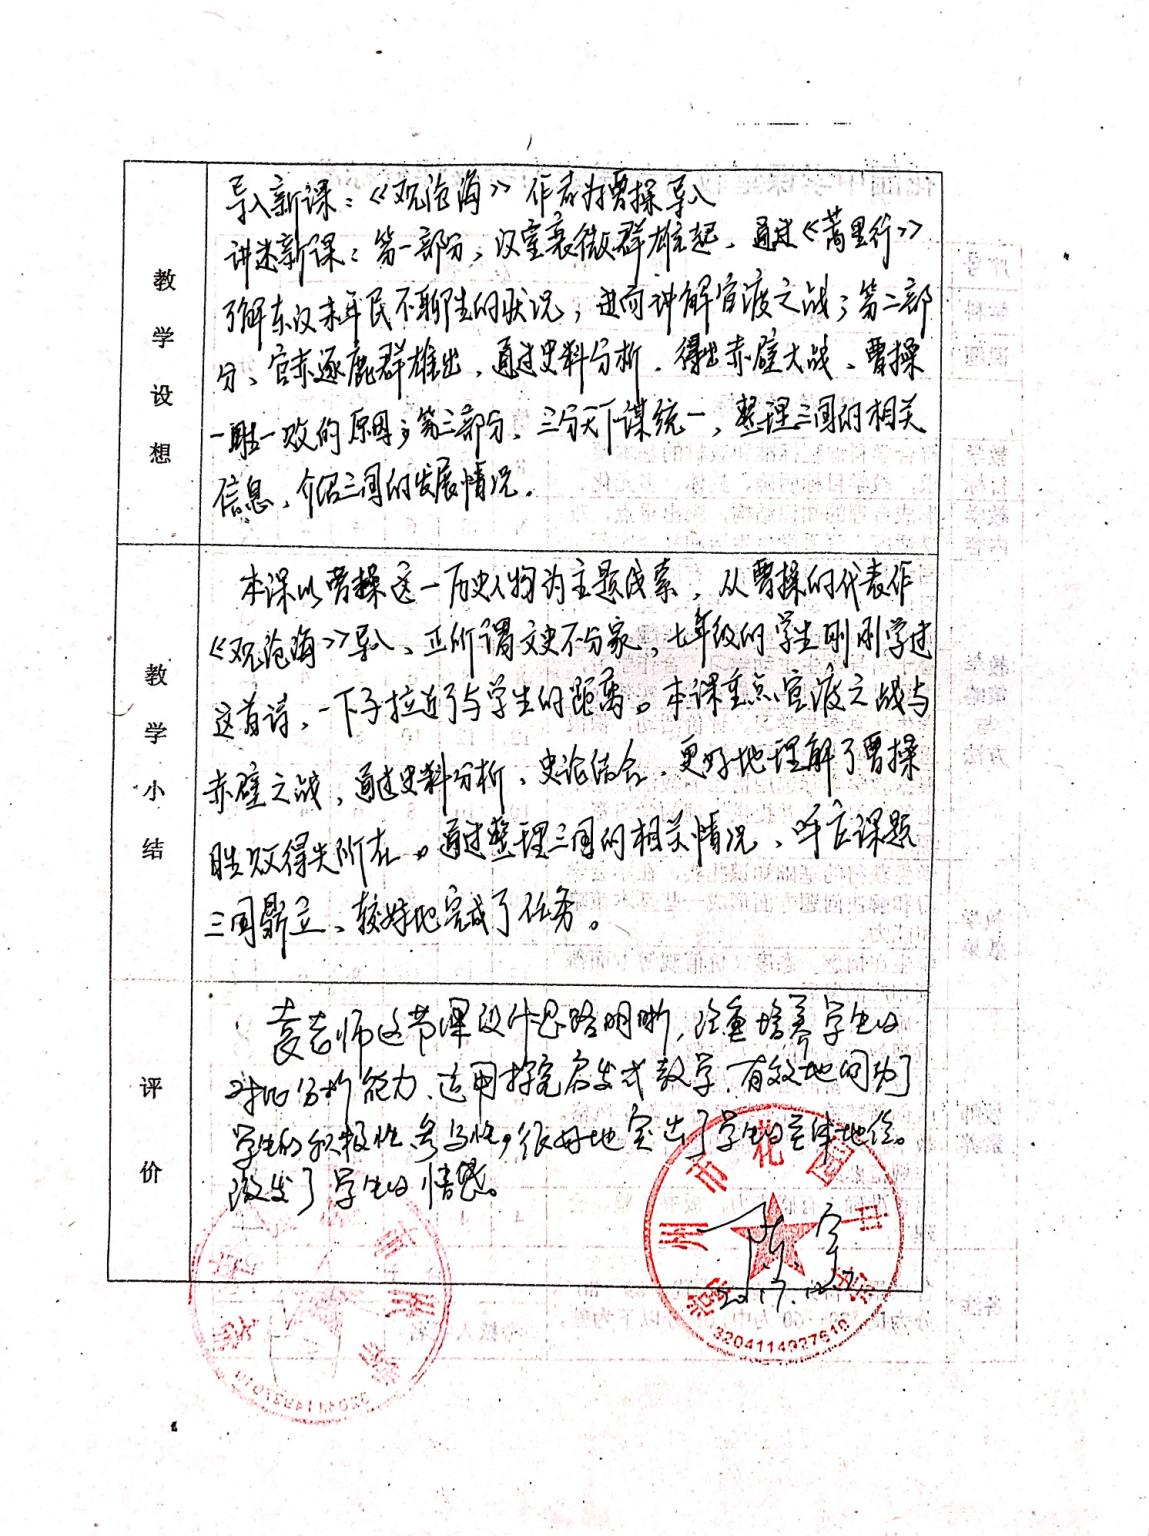 教学设想
导入新课：《观沧海》作者为曹操导入
讲述新课：第一部分、汉室衰微群雄起，通过《蒿里行》
了解东汉末年民不聊生的状况，进而讲解官渡之战；第二部
分、官赤逐鹿群雄出，通过史料分析，得出赤壁大战、曹操
一胜一败的原因；第三部分、三分天下谋统一，整理三国的相关
信息，介绍三国的发展情况。
教学小结
本课以曹操这一历史人物为主题线索，从曹操的代表作
《观沧海》导入、正所谓文史不分家，七年级的学生刚刚学过
这首诗，一下子拉近了与学生的距离。本课重点官渡之战与
赤壁之战，通过史料分析，史论结合，更好地理解了曹操
胜败得失所在。通过整理三国的相关情况、呼应课题
三国鼎立、较好地完成了任务。
评价
袁老师这节课设计思路明晰，注重培养学生的
对比分析能力、运用探究启发式教学，有效地调动了
学生的积极性参与性，很好地突出了学生的主体地位。
激发了学生的情感。
州市花园中
2017.12.7
3204114927610